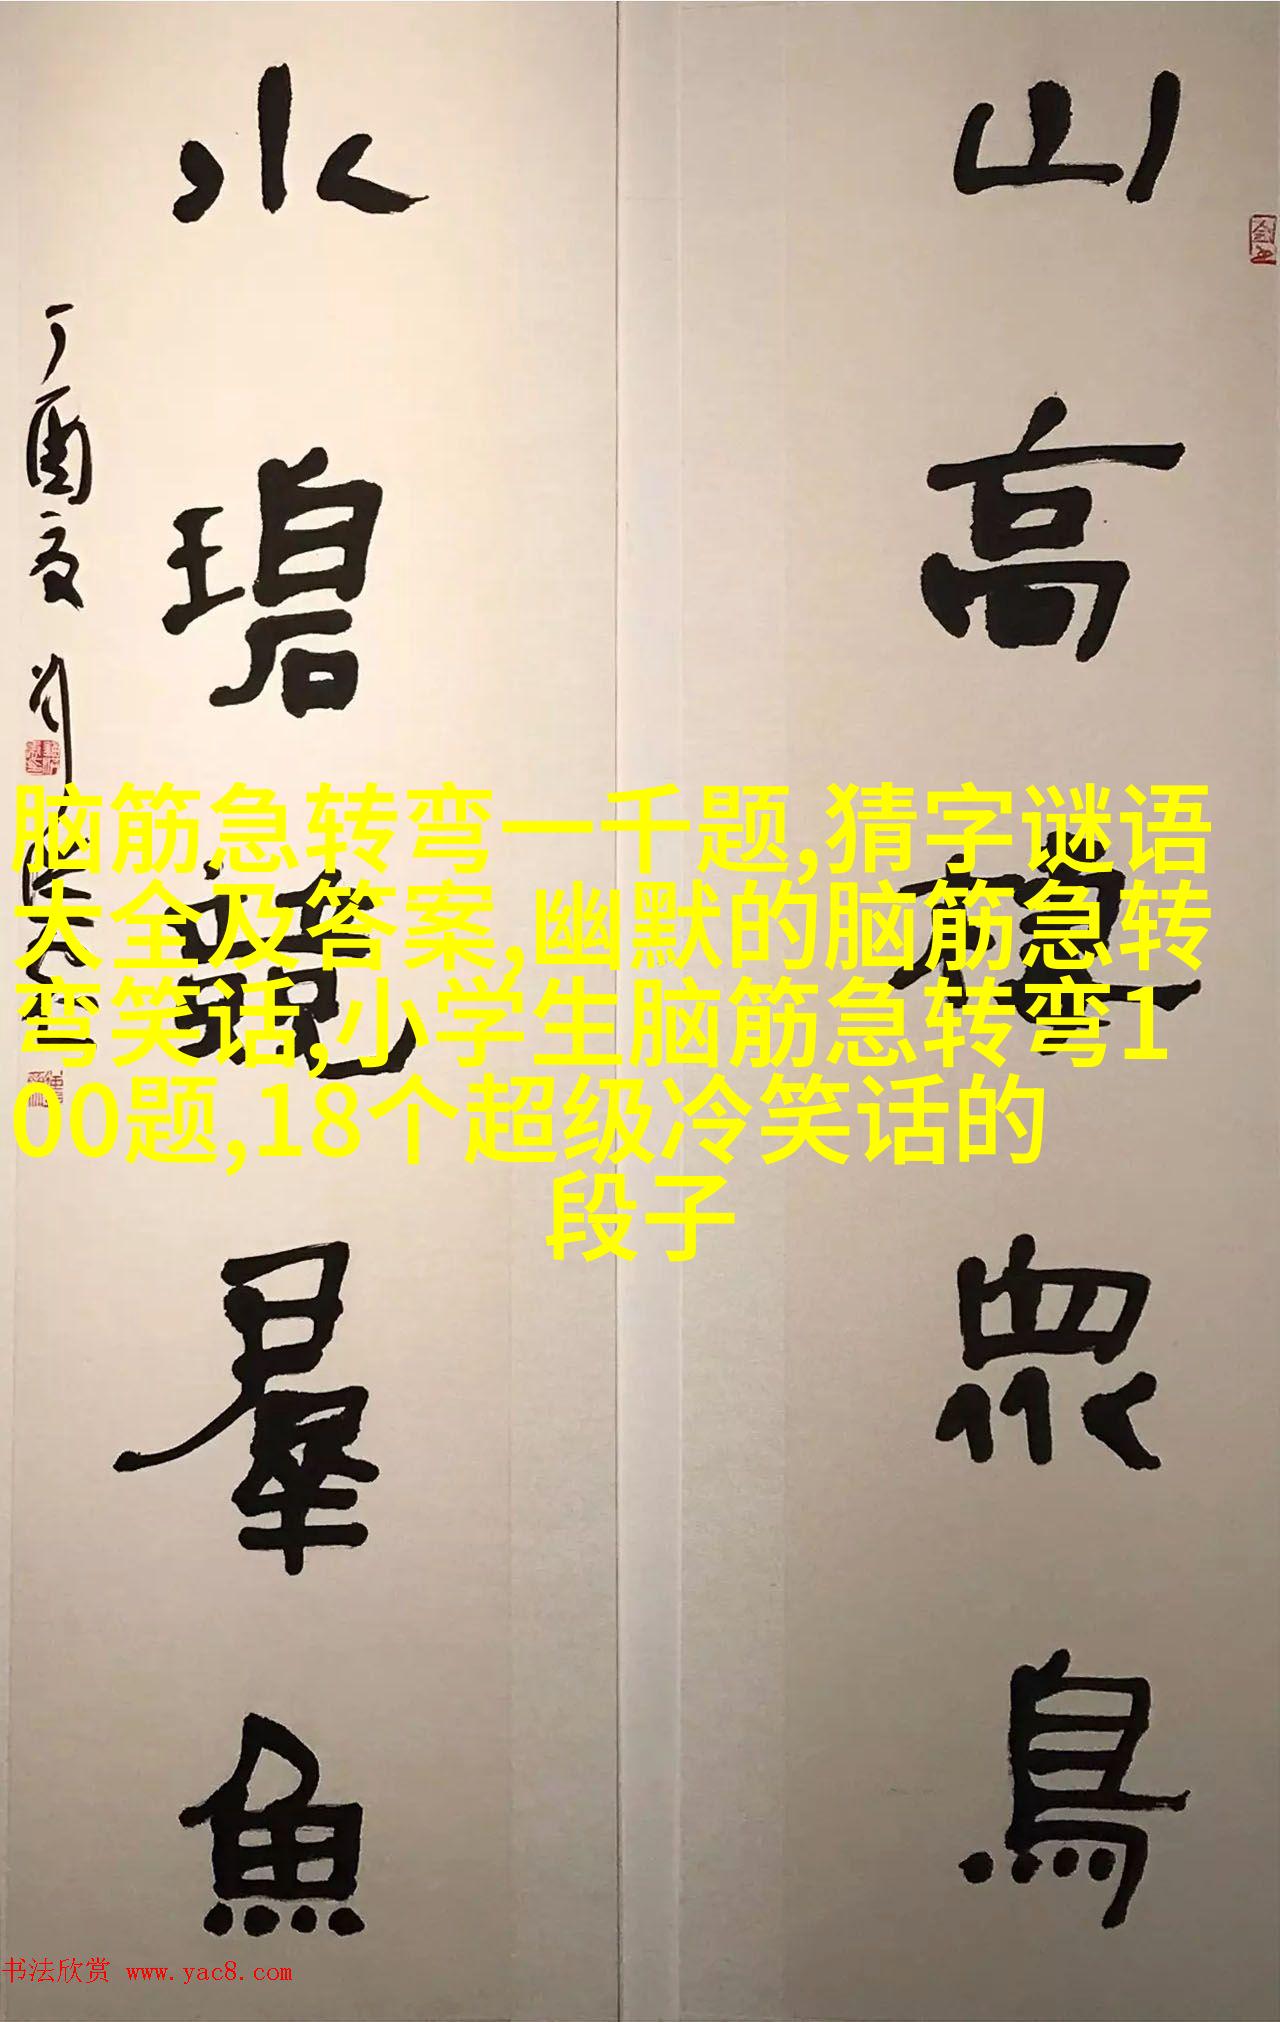 山高眾鳥
水碧羣魚
丁酉夏
脑筋急转弯一千题,猜字谜语
大全及答案,幽默的脑筋急转
弯笑话,小学生脑筋急转弯1
00题,18个超级冷笑话的
段子
书法欣赏 www.yac8.com